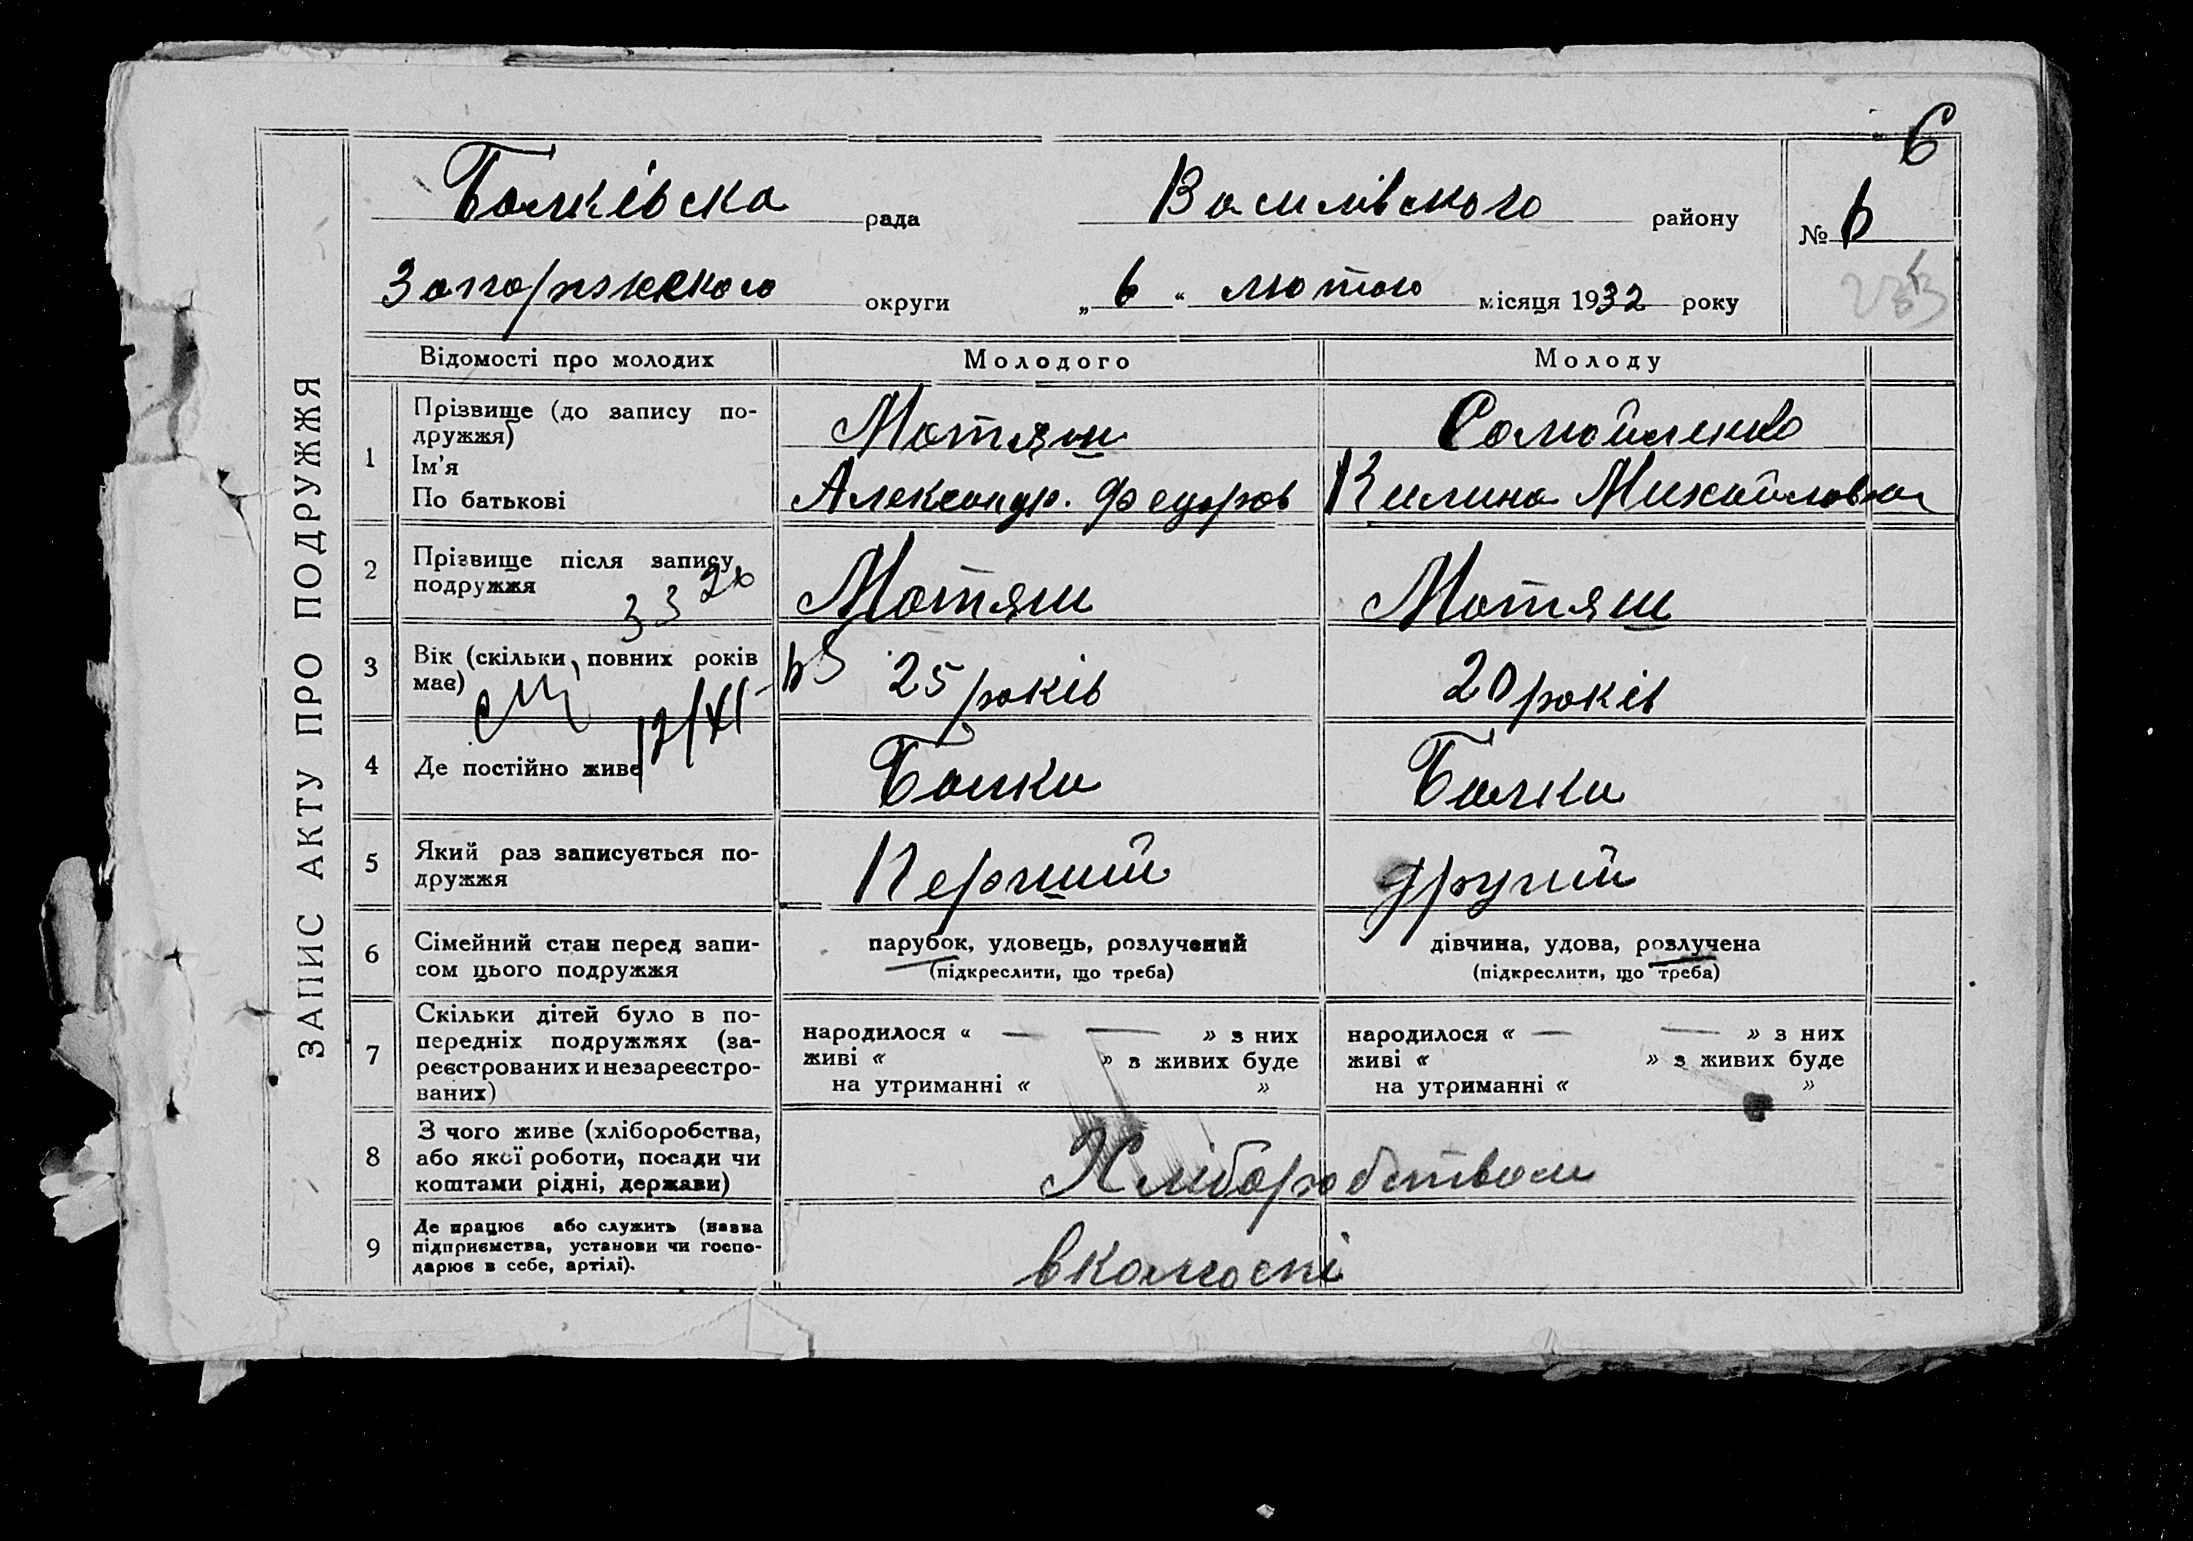 6
Балківска рада Василівского району № 6
Запоріжського округи „ 6 “ лютого місяця 1932 року
ЗАПИС АКТУ ПРО ПОДРУЖЖЯ
Відомості про молодих Молодого Молоду
1 Прізвище (до запису по-
дружжя) Мотяш Самойленко
Ім'я
По батькові Александр. Федоров Килина Михайловна
2 Прізвище після запису
подружжя Мотяш Мотяш
3 Вік (скільки повних років
має) 25 років 20 років
12/XI
4 Де постійно живе Балки Балки
5 Який раз записується по-
дружжя Перший другий
6 Сімейний стан перед запи-
сом цього подружжя
парубок, удовець, розлучений
(підкреслити, що треба)
дівчина, удова, розлучена
(підкреслити, що треба)
7 Скільки дітей було в по-
передніх подружжях (за-
реєстрованих и незареєстро-
ваних)
народилося « — — » з них
живі « » з живих буде
на утриманні « »
народилося « — — » з них
живі « » з живих буде
на утриманні « »
8 З чого живе (хліборобства,
або якої роботи, посади чи
коштами рідні, держави)
Хліборобством
9 Де працює або служить (назва
підприємства, установи чи госпо-
дарює в себе, артілі).
в колгоспі